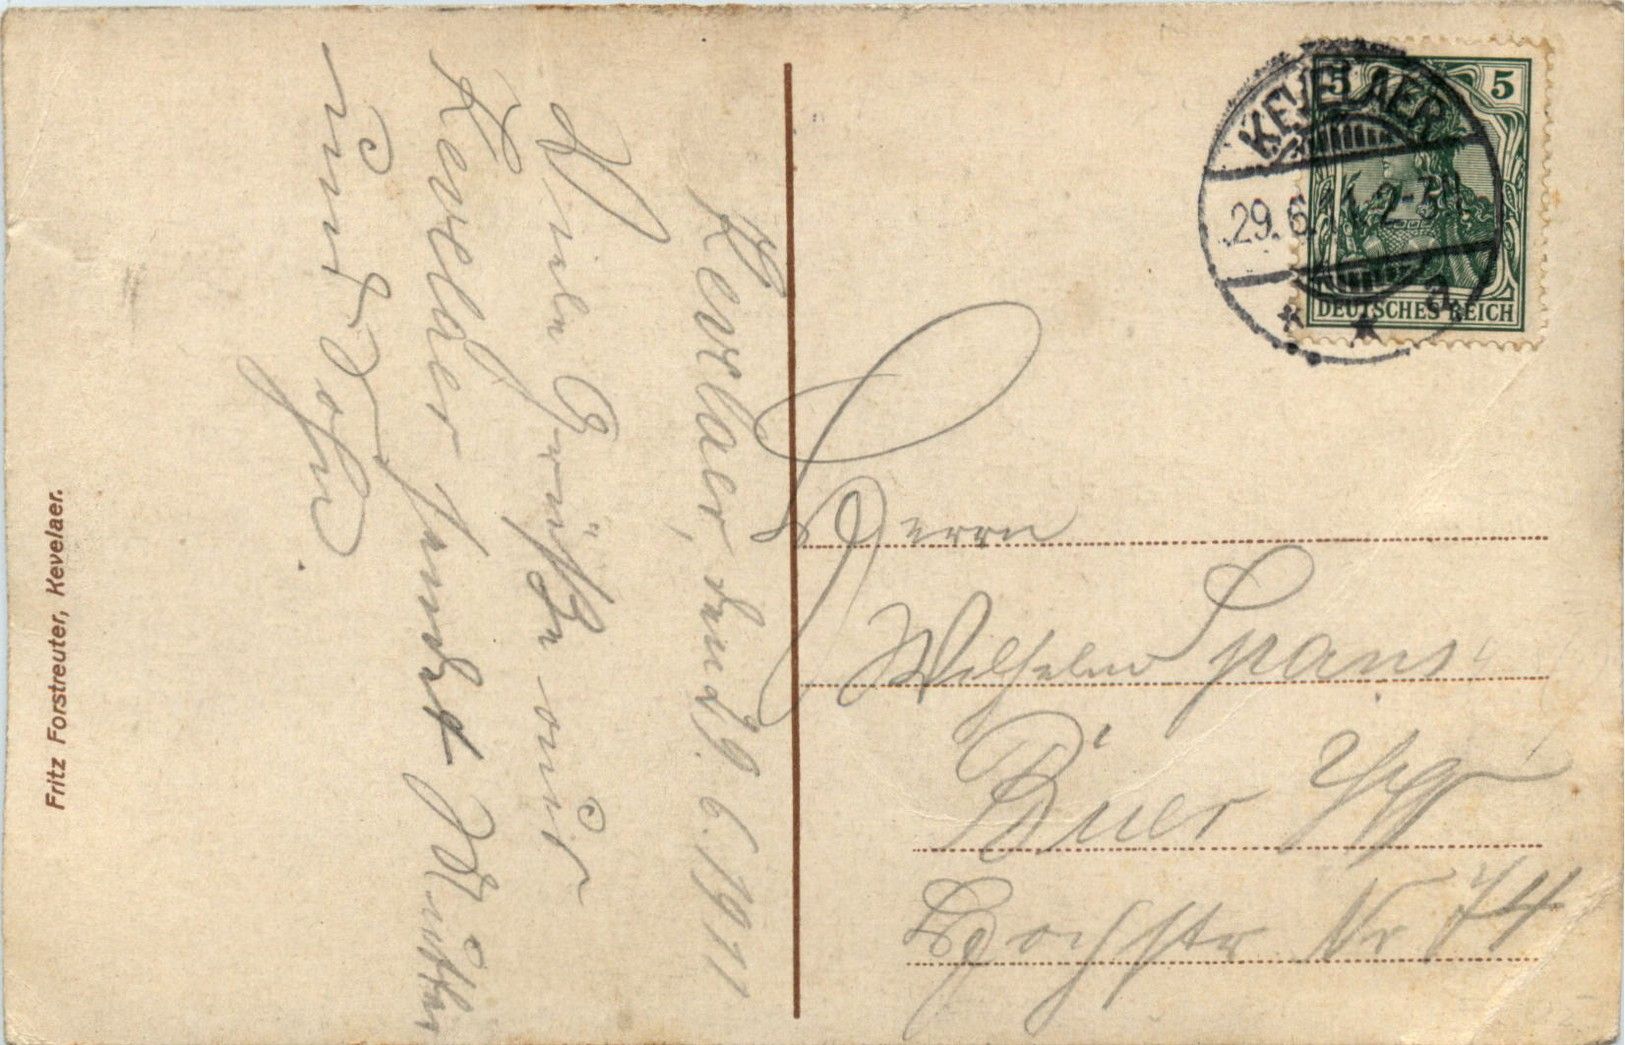 Kevelaer, den 29. 6. 1911
Viele Grüße aus
Kevelaer sendet Mutter
und Sohn.
Herrn
Wilhelm Spans
Buer
Hochstr Nr 74
KEVELAER
29.6.11. 2-3N.
* * a
5 5
DEUTSCHES REICH
Fritz Forstreuter, Kevelaer.